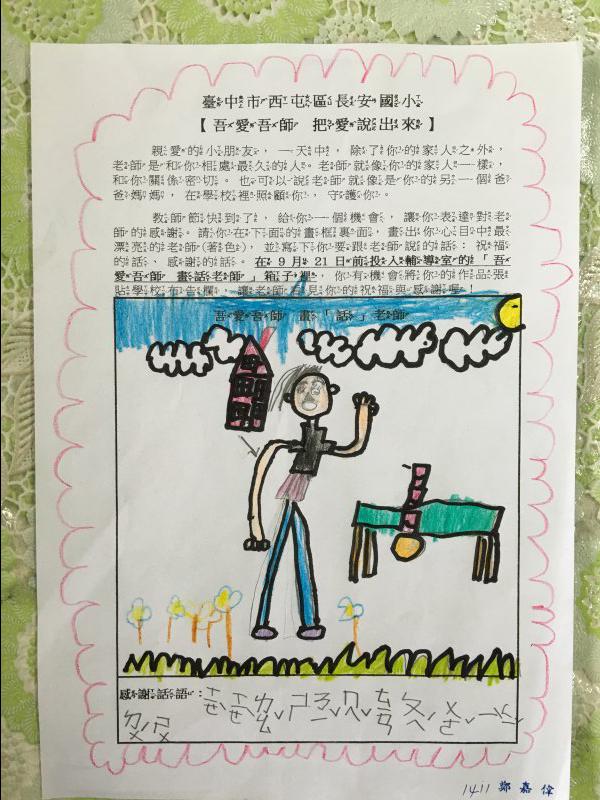 臺中市西屯區長安國小
【吾愛吾師 把愛說出來】
親愛的小朋友，一天中，除了你的家人之外，
老師是和你相處最久的人。老師就像你的家人一樣，
和你關係密切。也可以說老師就像是你的另一個爸
爸媽媽，在學校裡照顧你、守護你。
教師節快到了，給你一個機會，讓你表達對老
師的感謝。請你在下面的畫框裏面，畫出你心目中最
漂亮的老師(著色)，並寫下你要跟老師說的話：祝福
的話、感謝的話。在9月21日前投入輔導室的「吾
愛吾師 畫話老師」箱子裡，你有機會將你的作品張
貼學校布告欄，讓老師看見你的祝福與感謝喔！
吾愛吾師 畫「話」老師
感謝話語：
1411 鄭嘉偉